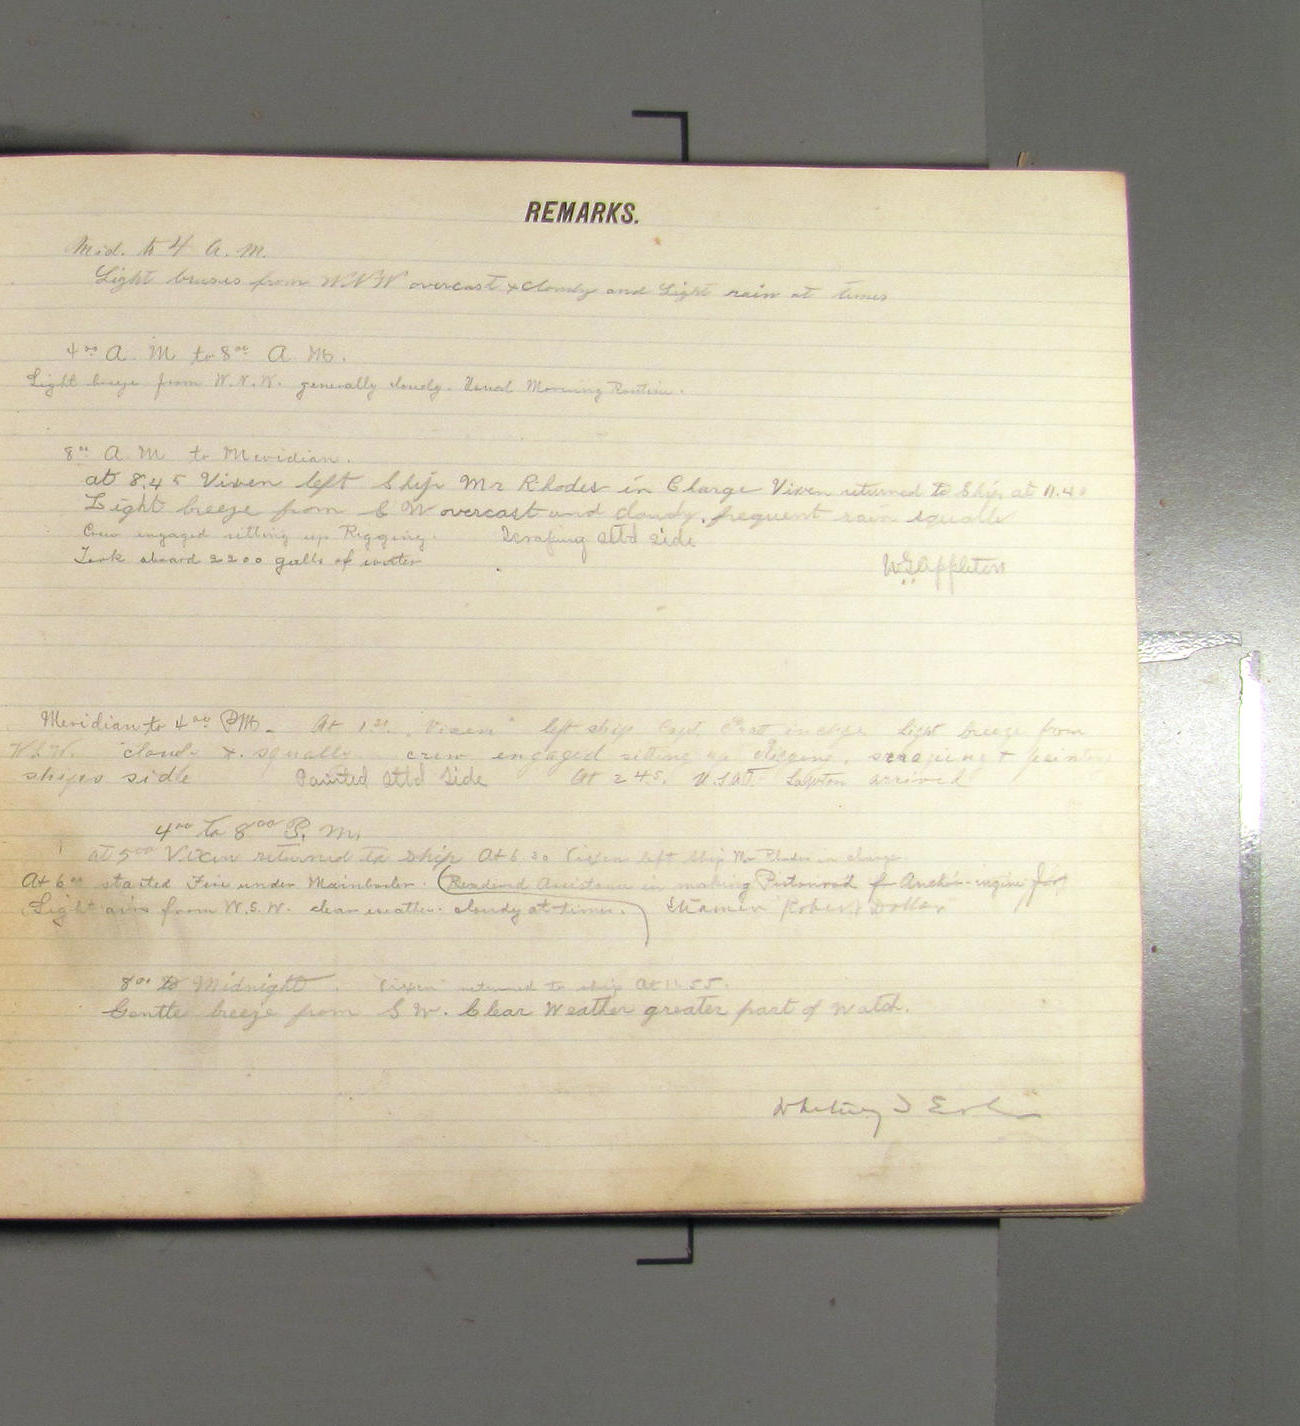 REMARKS.
Mid. to 4 A. M.
Light breeses from WNW overcast & cloudy and Light rain at times
4 00 A. M to 8 00 A. M.
Light breeze from W.N.W. generally cloudy. Usual Morning Routine.
8 00 A. M to Meridian.
at 8.45 Vixen left Ship Mr Rhodes in Charge Vixen returned to Ship at 11.40
Light breeze from S W overcast and cloudy. frequent rain squalls
Crew engaged setting up Rigging. Scraping stbd side
Took aboard 2200 galls of water
W.G. Appleton
Meridian to 4 00 PM. At 1 "Vixen" left ship Capt. in chge light breeze from
W.S.W. cloudy & squally crew engaged setting up scraping & painting
ships side Painted stbd side At 2 45. U.S.A.T. Lawton arrived
4 00 to 8 00 P. M.
at 5 00 Vixen returned to ship At 6 30 Vixen left ship Mr Rhodes in charge.
At 6 00 started Fire under Mainboiler. (Rendered Assistance in making Pistonrod for Anchor-engine for
Light airs from W.S.W. clear weather. cloudy at times. Steamer Robert Dollar
8 00 to Midnight. Vixen returned to ship At 11 55.
Gentle breeze from S W. Clear Weather greater part of watch.